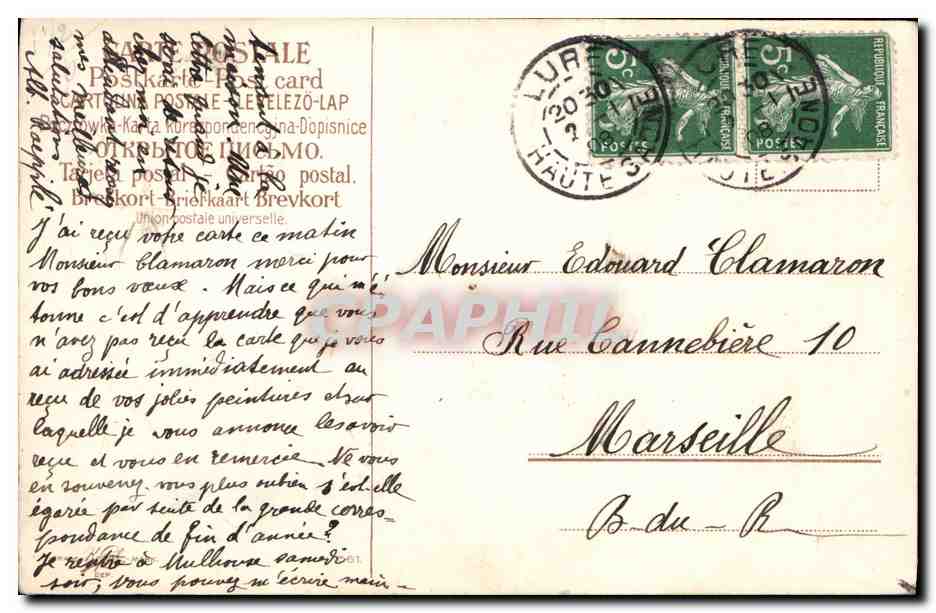 CARTE POSTALE
Postkarte - Post card
CARTOLINA POSTALE - LEVELEZŐ-LAP
Pocztówka - Karta korespondencyjna - Dopisnice
ОТКРЫТОЕ ПИСЬМО.
Tarjeta postal - Cartão postal.
Brefkort - Brierkaart Brevkort
Union postale universelle.
J'ai reçu votre carte ce matin
Monsieur Clamaron merci pour
vos bons vœux. Mais ce qui m'é
tonne c'est d'apprendre que vous
n'avez pas reçu la carte que je vous
ai adressée immédiatement au
reçu de vos jolies peintures et sur
laquelle je vous annonce les avoir
reçu et vous en remercie. Ne vous
en souvenez-vous plus ou bien s'est-elle
égarée par suite de la grande corres-
pondance de fin d'année?
Je rentre à Mulhouse samedi
soir, vous pouvez m'écrire main-
tenant à la
maison.
mes meilleures
salutations
LURE
20 30
2 1
08
HAUTE SAONE
5c
REPUBLIQUE FRANÇAISE
POSTES
LURE
20 30
2 1
08
HAUTE SAONE
5c
REPUBLIQUE FRANÇAISE
POSTES
Monsieur Edouard Clamaron
Rue Cannebière 10
Marseille
B-du-R
CPAPHIL